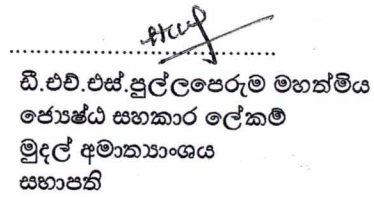 ඩී.එච්.එස්.පුල්ලපෙරුම මහත්මිය
ජ්‍යෙෂ්ඨ සහකාර ලේකම්
මුදල් අමාත්‍යාංශය
සභාපති